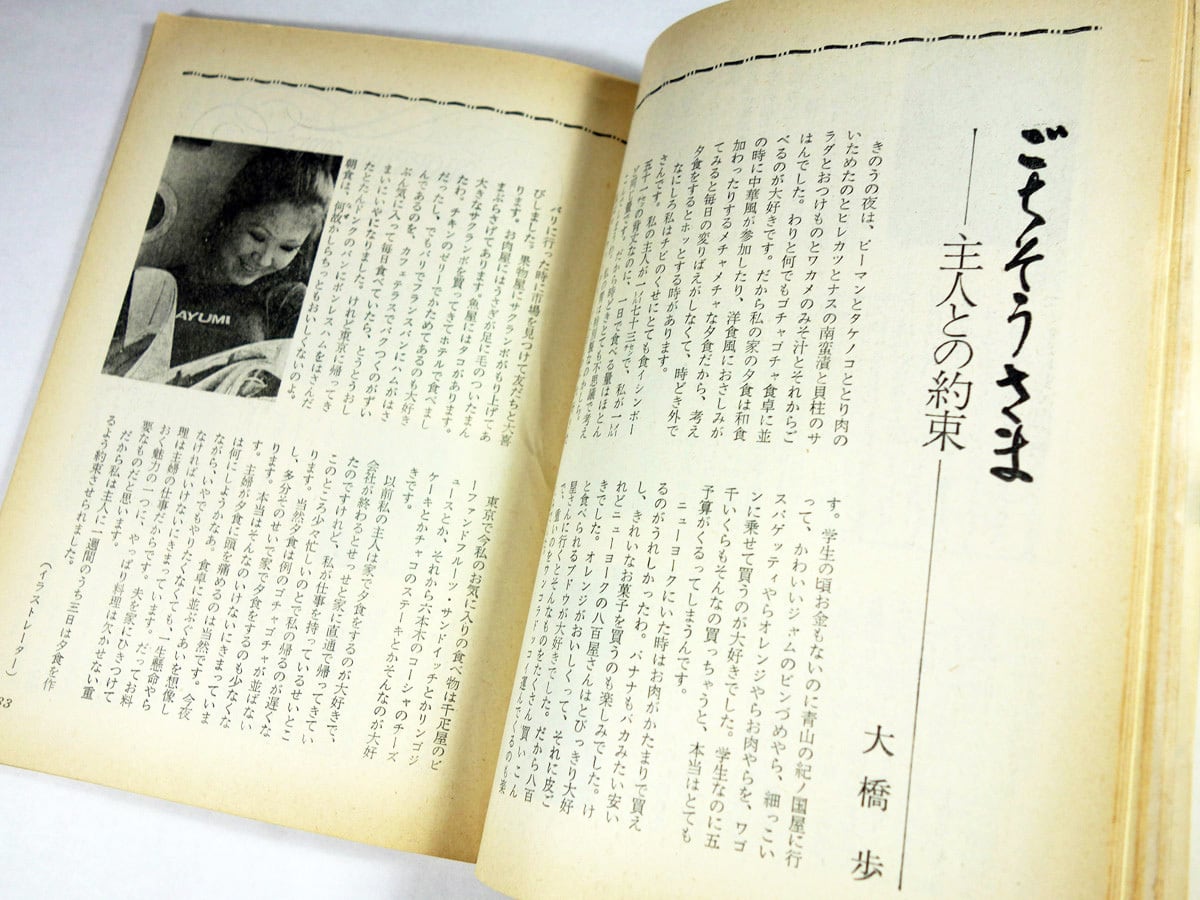 ごちそうさま
――主人との約束――
大橋 歩
きのうの夜は、ピーマンとタケノコととり肉の
いためたのとヒレカツとナスの南蛮漬と貝柱のサ
ラダとおつけものとワカメのみそ汁とそれからご
はんでした。わりと何でもゴチャゴチャ食卓に並
べるのが大好きです。だから私の家の夕食は和食
の時に中華風が参加したり、洋食風におさしみが
加わったりするメチャメチャな夕食だから、考え
てみると毎日の変りばえがしなくて、時どき外で
夕食をするとホッとする時があります。
なにしろ私はチビのくせにとても食イシンボー
さんです。私の主人が一㍍七十三㌢で、私が一㍍
五十一㌢の背丈なのに、一日で食べる量はほとん
す。学生の頃お金もないのに青山の紀ノ国屋に行
って、かわいいジャムのビンづめやら、細っこい
スパゲッティやらオレンジやらお肉やらを、ワゴ
ンに乗せて買うのが大好きでした。学生なのに五
千いくらもそんなの買っちゃうと、本当はとても
予算がくるってしまうんです。
ニューヨークにいた時はお肉がかたまりで買え
るのがうれしかったわ。バナナもバカみたい安い
し、きれいなお菓子を買うのも楽しみでした。け
れどニューヨークの八百屋さんはとびっきり大好
きでした。オレンジがおいしくって、それに皮ご
と食べられるブドウが大好きでした。だから八百
屋さんに行くとそんなものをたくさん買いこん
パリに行った時に市場を見つけて友だちと大喜
びしました。果物屋にサクランボがもり上げてあ
ります。お肉屋にはうさぎが足に毛のついたまん
まぶらさげてあります。魚屋にはタコがあります。
大きなサクランボを買ってきてホテルで食べまし
たわ。チキンのゼリーでかためてあるのも大好き
だったし、でもパリでフランスパンにハムがはさ
んであるのを、カフェテラスでパクつくのがずい
ぶん気に入って毎日食べていたら、とうとうおし
まいにいやになりました。けれど東京に帰ってき
朝食は、何故かしらちっともおいしくないのよ。
東京で今私のお気に入りの食べ物は千疋屋のピ
ーファンドフルーツ・サンドイッチとかリンゴジ
ュースとか、それから六本木のコーシャのチーズ
ケーキとかチャコのステーキとかそんなのが大好
きです。
以前私の主人は家で夕食をするのが大好きで、
会社が終わるとせっせと家に直通で帰ってきてい
たのですけれど、私が仕事を持っているせいとこ
このところ少々忙しいのとで私の帰るのが遅くな
ります。当然夕食は例のゴチャゴチャが並ばない
し、多分そのせいで家で夕食をするのも少なくな
ります。本当はそんなのいけないにきまっていま
す。主婦が夕食に頭を痛めるのは当然です。今夜
は何にしようかなあ。食卓に並ぶぐあいを想像し
ながら、いやでもやりたくなくても、一生懸命やら
なければいけないにきまっています。だってお料
理は主婦の仕事だからです。夫を家にひきつけて
おく魅力の一つに、やっぱり料理は欠かせない重
要なものだと思います。
だから私は主人に一週間のうち三日は夕食を作
るよう約束させられました。
（イラストレーター）
AYUMI
33